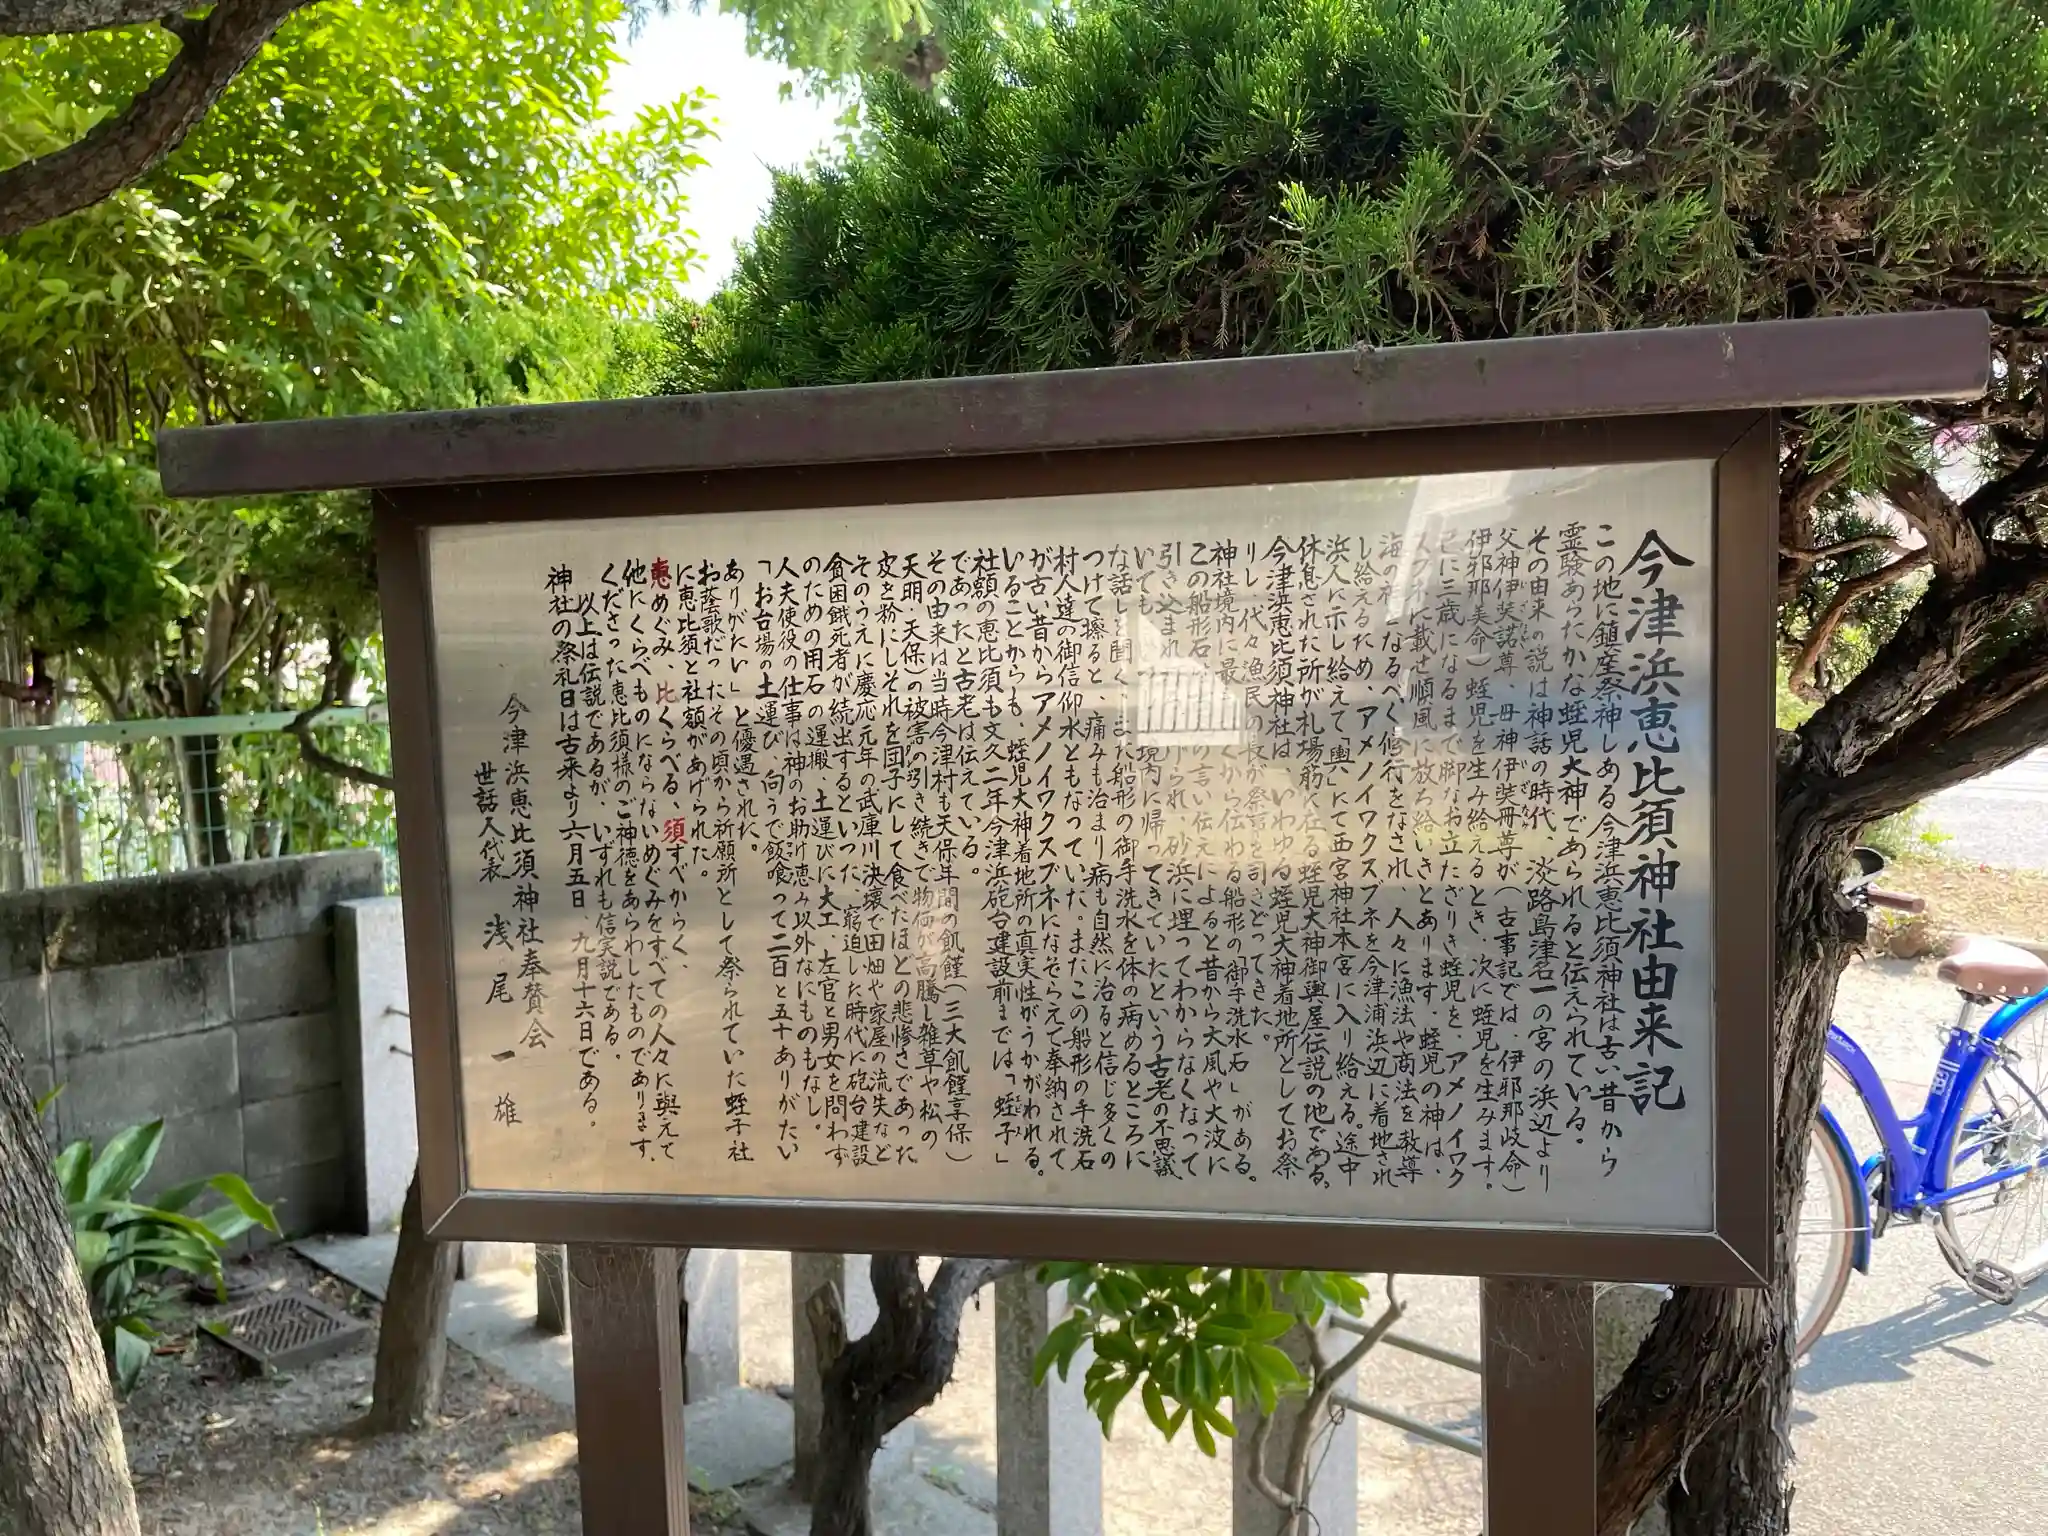 今津浜恵比須神社由来記
この地に鎮座祭神しある今津浜恵比須神社は古い昔から
霊験あらたかな蛭児大神であられると伝えられている。
その由来の説は神話の時代、淡路島津名一の宮の浜辺より
父神伊奘諾尊、母神伊奘冊尊が(古事記では、伊耶那岐命)
伊邪那美命)蛭児を生み給えるとき、次に蛭児を生みます。
已に三歳になるまで脚なお立たざりき蛭児を、アメノイワク
スブネに載せ順風に放ち給いきとあります。蛭児の神は、
海の神となるべく修行をなされ、人々に漁法や商法を教導
し給えるため、アメノイワクスブネを今津浦浜辺に着地され
浜人に示し給えて「輿」にて西宮神社本宮に入り給える。途中
休息された所が札場筋に在る蛭児大神御輿屋伝説の地である。
今津浜恵比須神社は、いわゆる蛭児大神着地所としてお祭
りし、代々漁民の長が祭言を司さどってきた。
神社境内に最 くから伝わる船形の「御手洗水石」がある。
この船形石 の言い伝えによると昔から大風や大波に
引き込まれ られ、砂浜に埋ってわからなくなって
いても 境内に帰ってきていたという古老の不思議
な話しを聞く、また船形の御手洗水を体の病めるところに
つけて擦ると、痛みも治まり病も自然に治ると信じ多くの
村人達の御信仰水ともなっていた。またこの船形の手洗石
が古い昔からアメノイワクスブネになぞらえて奉納されて
いることからも、蛭児大神着地所の真実性がうかがわれる。
社額の恵比須も文久二年今津浜砲台建設前までは「蛭子」
であったと古老は伝えている。
その由来は当時今津村も天保年間の飢饉(三大飢饉享保)
天明・天保)の被害の引き続きで物価が高騰し雑草や松の
皮を粉にしそれを団子にして食べたほどの悲惨さであった
そのうえに慶応元年の武庫川決壊で田畑や家屋の流失など
貧困餓死者が続出するといった、窮迫した時代に砲台建設
のための用石の運搬、土運びに大工、左官と男女を問わず
人夫使役の仕事は神のお助け恵み以外なにものもなし。
「お台場の土運び、向うで飯喰って二百と五十ありがたい
ありがたい」と優遇された。
お蔭歌だったその頃から祈願所として祭られていた蛭子社
に恵比須と社額があげられた。
恵めぐみ、比くらべる、須すべからく、
他にくらべものにならないめぐみをすべての人々に與えて
くださった恵比須様のご神徳をあらわしたものであります、
以上は伝説であるが、いずれも信実説である。
神社の祭礼日は古来より六月五日、九月十六日である。
今津浜恵比須神社奉賛会
世話人代表 浅尾一雄